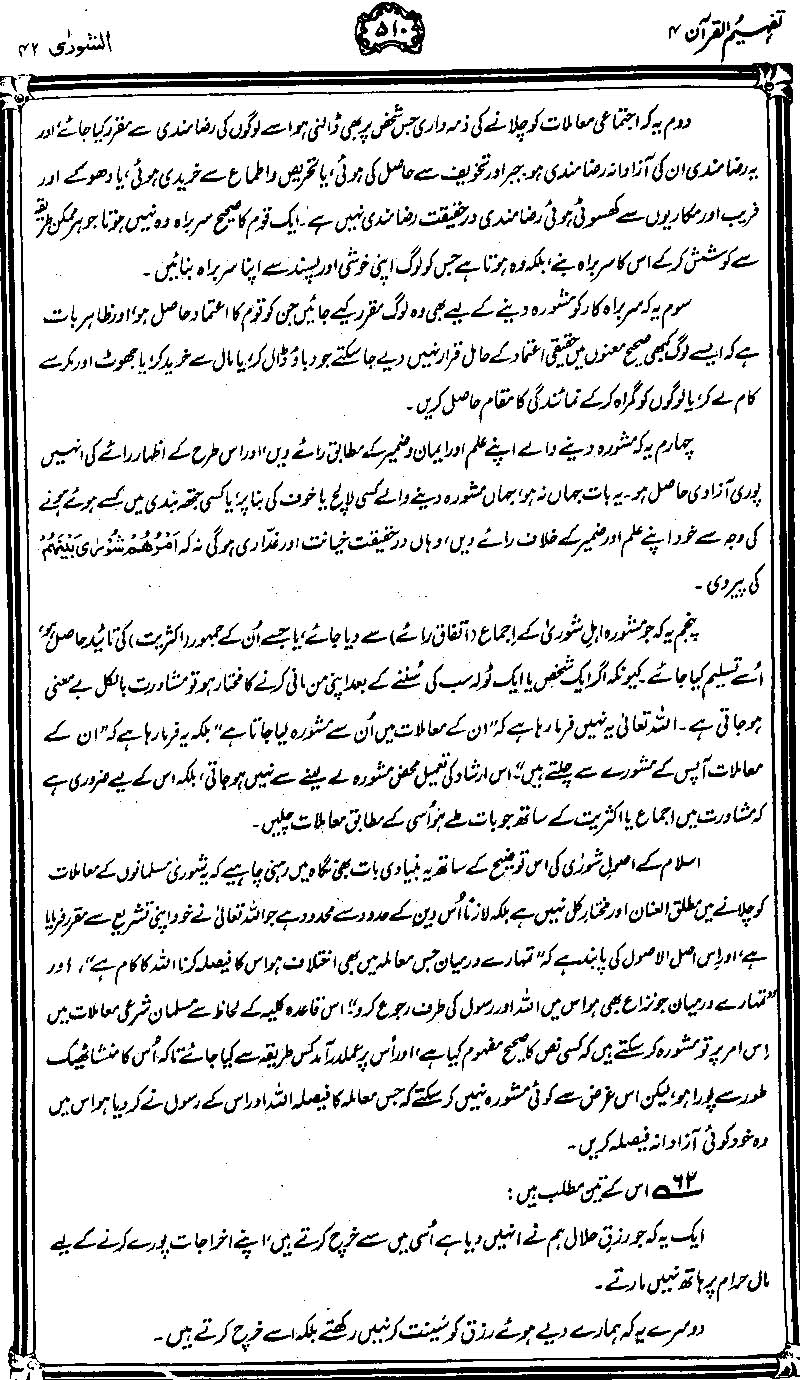 تفہیم القرآن ۴
۵۱۰
الشورٰی ۴۲
دوم یہ کہ اجتماعی معاملات کو چلانے کی ذمہ داری جس شخص پر بھی ڈالنی ہو اسے لوگوں کی رضامندی سے مقرر کیا جائے، اور
یہ رضامندی ان کی آزادانہ رضامندی ہو۔ جبر اور تخویف سے حاصل کی ہوئی، یا تحریص و اطماع سے خریدی ہوئی، یا دھوکے اور
فریب اور مکاریوں سے کھسوٹی ہوئی رضامندی درحقیقت رضامندی نہیں ہے۔ ایک قوم کا صحیح سربراہ وہ نہیں ہوتا جو ہر ممکن طریقہ
سے کوشش کر کے اس کا سربراہ بنے، بلکہ وہ ہوتا ہے جس کو لوگ اپنی خوشی اور پسند سے اپنا سربراہ بنائیں۔
سوم یہ کہ سربراہ کار کو مشورہ دینے کے لیے بھی وہ لوگ مقرر کیے جائیں جن کو قوم کا اعتماد حاصل ہو، اور ظاہر بات
ہے کہ ایسے لوگ کبھی صحیح معنوں میں حقیقی اعتماد کے حامل قرار نہیں دیے جا سکتے جو دباؤ ڈال کر، یا مال سے خرید کر، یا جھوٹ اور مکر سے
کام لے کر، یا لوگوں کو گمراہ کر کے نمائندگی کا مقام حاصل کریں۔
چہارم یہ کہ مشورہ دینے والے اپنے علم اور ایمان و ضمیر کے مطابق رائے دیں، اور اس طرح کے اظہار رائے کی انہیں
پوری آزادی حاصل ہو۔ یہ بات جہاں نہ ہو، جہاں مشورہ دینے والے کسی لالچ یا خوف کی بنا پر، یا کسی جتھہ بندی میں کسے ہوئے ہونے
کی وجہ سے خود اپنے علم اور ضمیر کے خلاف رائے دیں، وہاں درحقیقت خیانت اور غدّاری ہوگی نہ کہ اَمْرُهُمْ شُوْرٰى بَيْنَهُمْ
کی پیروی۔
پنجم یہ کہ جو مشورہ اہلِ شوریٰ کے اجماع (اتفاق رائے) سے دیا جائے، یا جسے اُن کے جمہور (اکثریت) کی تائید حاصل ہو،
اُسے تسلیم کیا جائے۔ کیونکہ اگر ایک شخص یا ایک ٹولہ سب کی سُننے کے بعد اپنی من مانی کرنے کا مختار ہو تو مشاورت بالکل بے معنی
ہو جاتی ہے۔ اللہ تعالیٰ یہ نہیں فرما رہا ہے کہ "ان کے معاملات میں اُن سے مشورہ لیا جاتا ہے" بلکہ یہ فرما رہا ہے کہ "ان کے
معاملات آپس کے مشورے سے چلتے ہیں"۔ اس ارشاد کی تعمیل محض مشورہ لے لینے سے نہیں ہو جاتی، بلکہ اس کے لیے ضروری ہے
کہ مشاورت میں اجماع یا اکثریت کے ساتھ جو بات طے ہو اُسی کے مطابق معاملات چلیں۔
اسلام کے اصولِ شوریٰ کی اس توضیح کے ساتھ یہ بنیادی بات بھی نگاہ میں رہنی چاہیے کہ یہ شوریٰ مسلمانوں کے معاملات
کو چلانے میں مطلق العنان اور مختار کل نہیں ہے بلکہ لازماً اُس دین کے حدود سے محدود ہے جو اللہ تعالیٰ نے خود اپنی تشریع سے مقرر فرمایا
ہے، اور اِس اصل الاصول کی پابند ہے کہ "تمہارے درمیان جس معاملہ میں بھی اختلاف ہو اس کا فیصلہ کرنا اللہ کا کام ہے"، اور
"تمہارے درمیان جو نزاع بھی ہو اس میں اللہ اور رسول کی طرف رجوع کرو"۔ اس قاعدہ کلیہ کے لحاظ سے مسلمان شرعی معاملات میں
اس امر پر تو مشورہ کر سکتے ہیں کہ کسی نص کا صحیح مفہوم کیا ہے، اور اُس پر عملدرآمد کس طریقہ سے کیا جائے تاکہ اُس کا منشا ٹھیک
طور سے پورا ہو، لیکن اس غرض سے کوئی مشورہ نہیں کر سکتے کہ جس معاملہ کا فیصلہ اللہ اور اس کے رسول نے کر دیا ہو اس میں
وہ خود کوئی آزادانہ فیصلہ کریں۔
۶۲ اس کے تین مطلب ہیں:
ایک یہ کہ جو رزقِ حلال ہم نے انہیں دیا ہے اُسی میں سے خرچ کرتے ہیں، اپنے اخراجات پورے کرنے کے لیے
مالِ حرام پر ہاتھ نہیں مارتے۔
دوسرے یہ کہ ہمارے دیے ہوئے رزق کو سَینت کر نہیں رکھتے بلکہ اسے خرچ کرتے ہیں۔